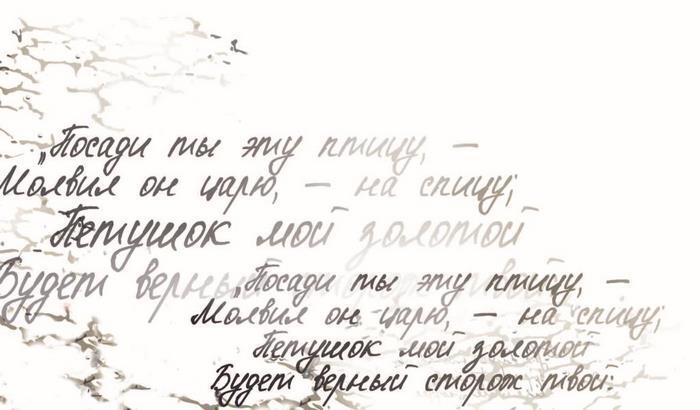 „Посади ты эту птицу, —
Молвил он царю, — на спицу;
Петушок мой золотой
Будет верный сторож твой:
„Посади ты эту птицу, —
Молвил он царю, — на спицу;
Петушок мой золотой
Будет верный сторож твой: